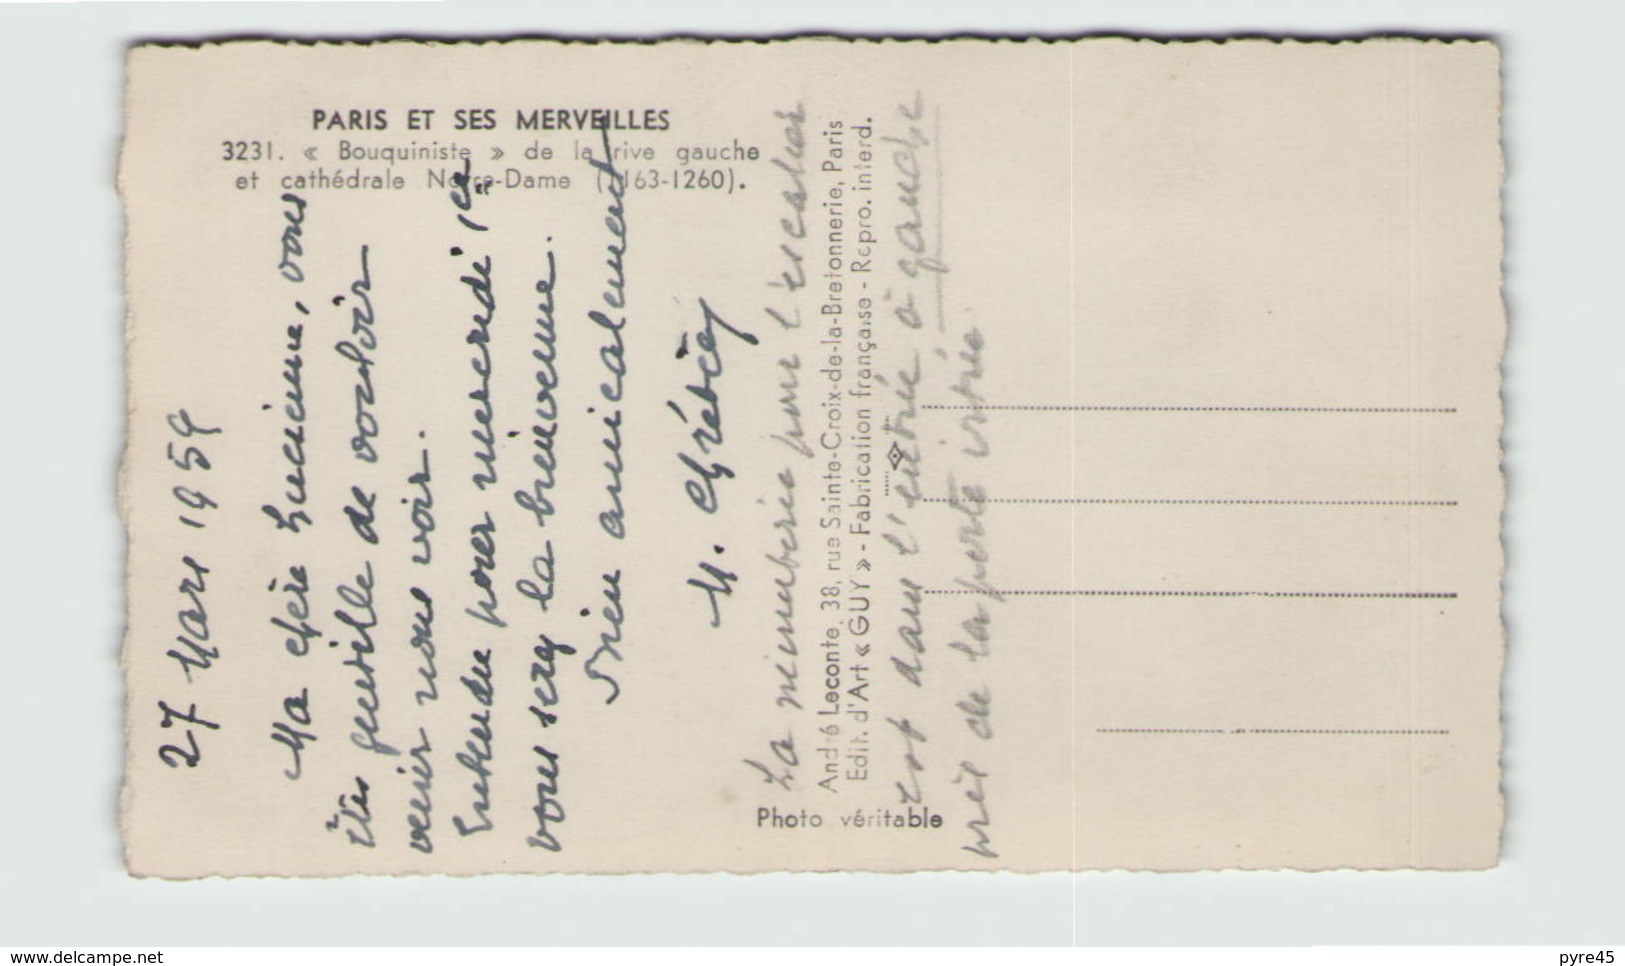 PARIS ET SES MERVEILLES
3231. « Bouquiniste » de la rive gauche
et cathédrale Notre-Dame (1163-1260).
27 Mars 1959
Ma chère Lucienne, vous
êtes gentille de vouloir
venir nous voir.
Entendu pour mercredi 1er
vous serez la bienvenue.
Bien amicalement
M.
La minuterie pour l'escalier
est dans l'entrée à gauche
près de la porte vitrée.
André Leconte, 38, rue Sainte-Croix-de-la-Bretonnerie, Paris
Edit. d'Art « GUY » - Fabrication française - Repro. interd.
Photo véritable
www.delcampe.net
pyre45